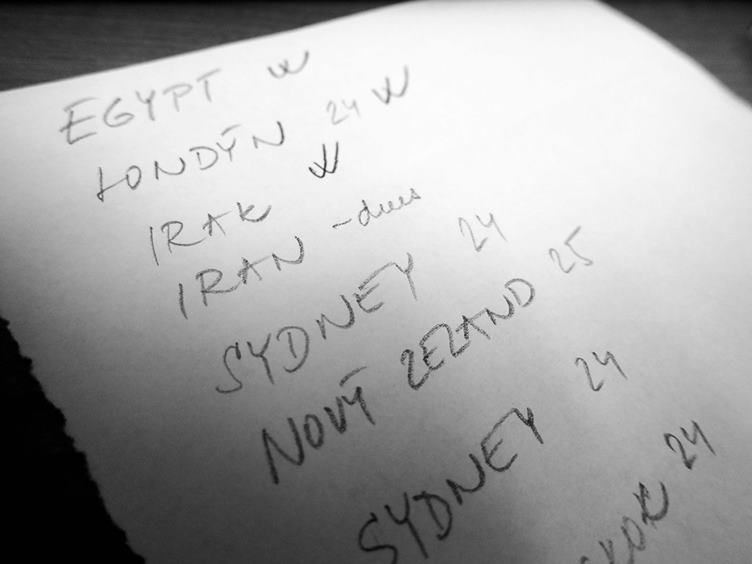 EGYPT W
LONDÝN 24 W
IRAK W
IRAN - dnes
SYDNEY 24
NOVÝ ZEZAND 25
SYDNEY 24
24